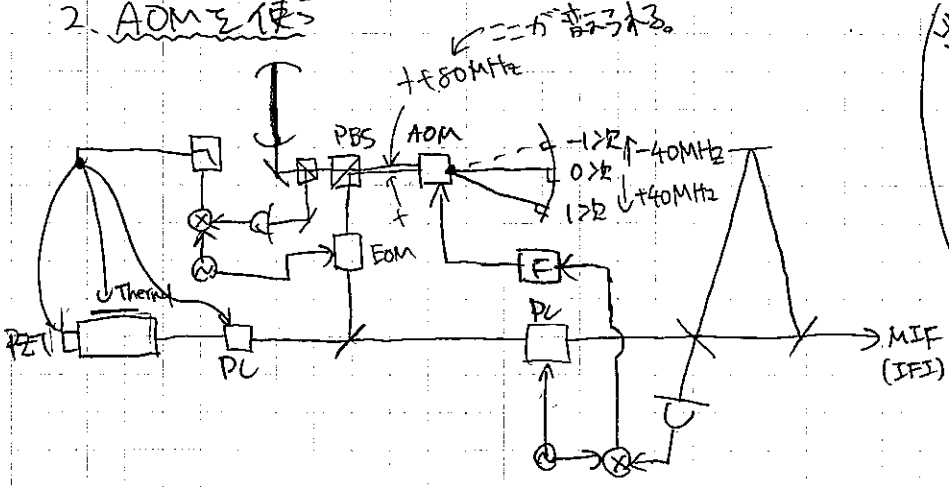 2. AOMを使う
ここが変えられる。
f+80MHz
PBS
AOM
-1次 ↑-40MHz
0次
1次 ↓+40MHz
f
EOM
F
Thermal
PZT
PC
PC
MIF
(IFI)